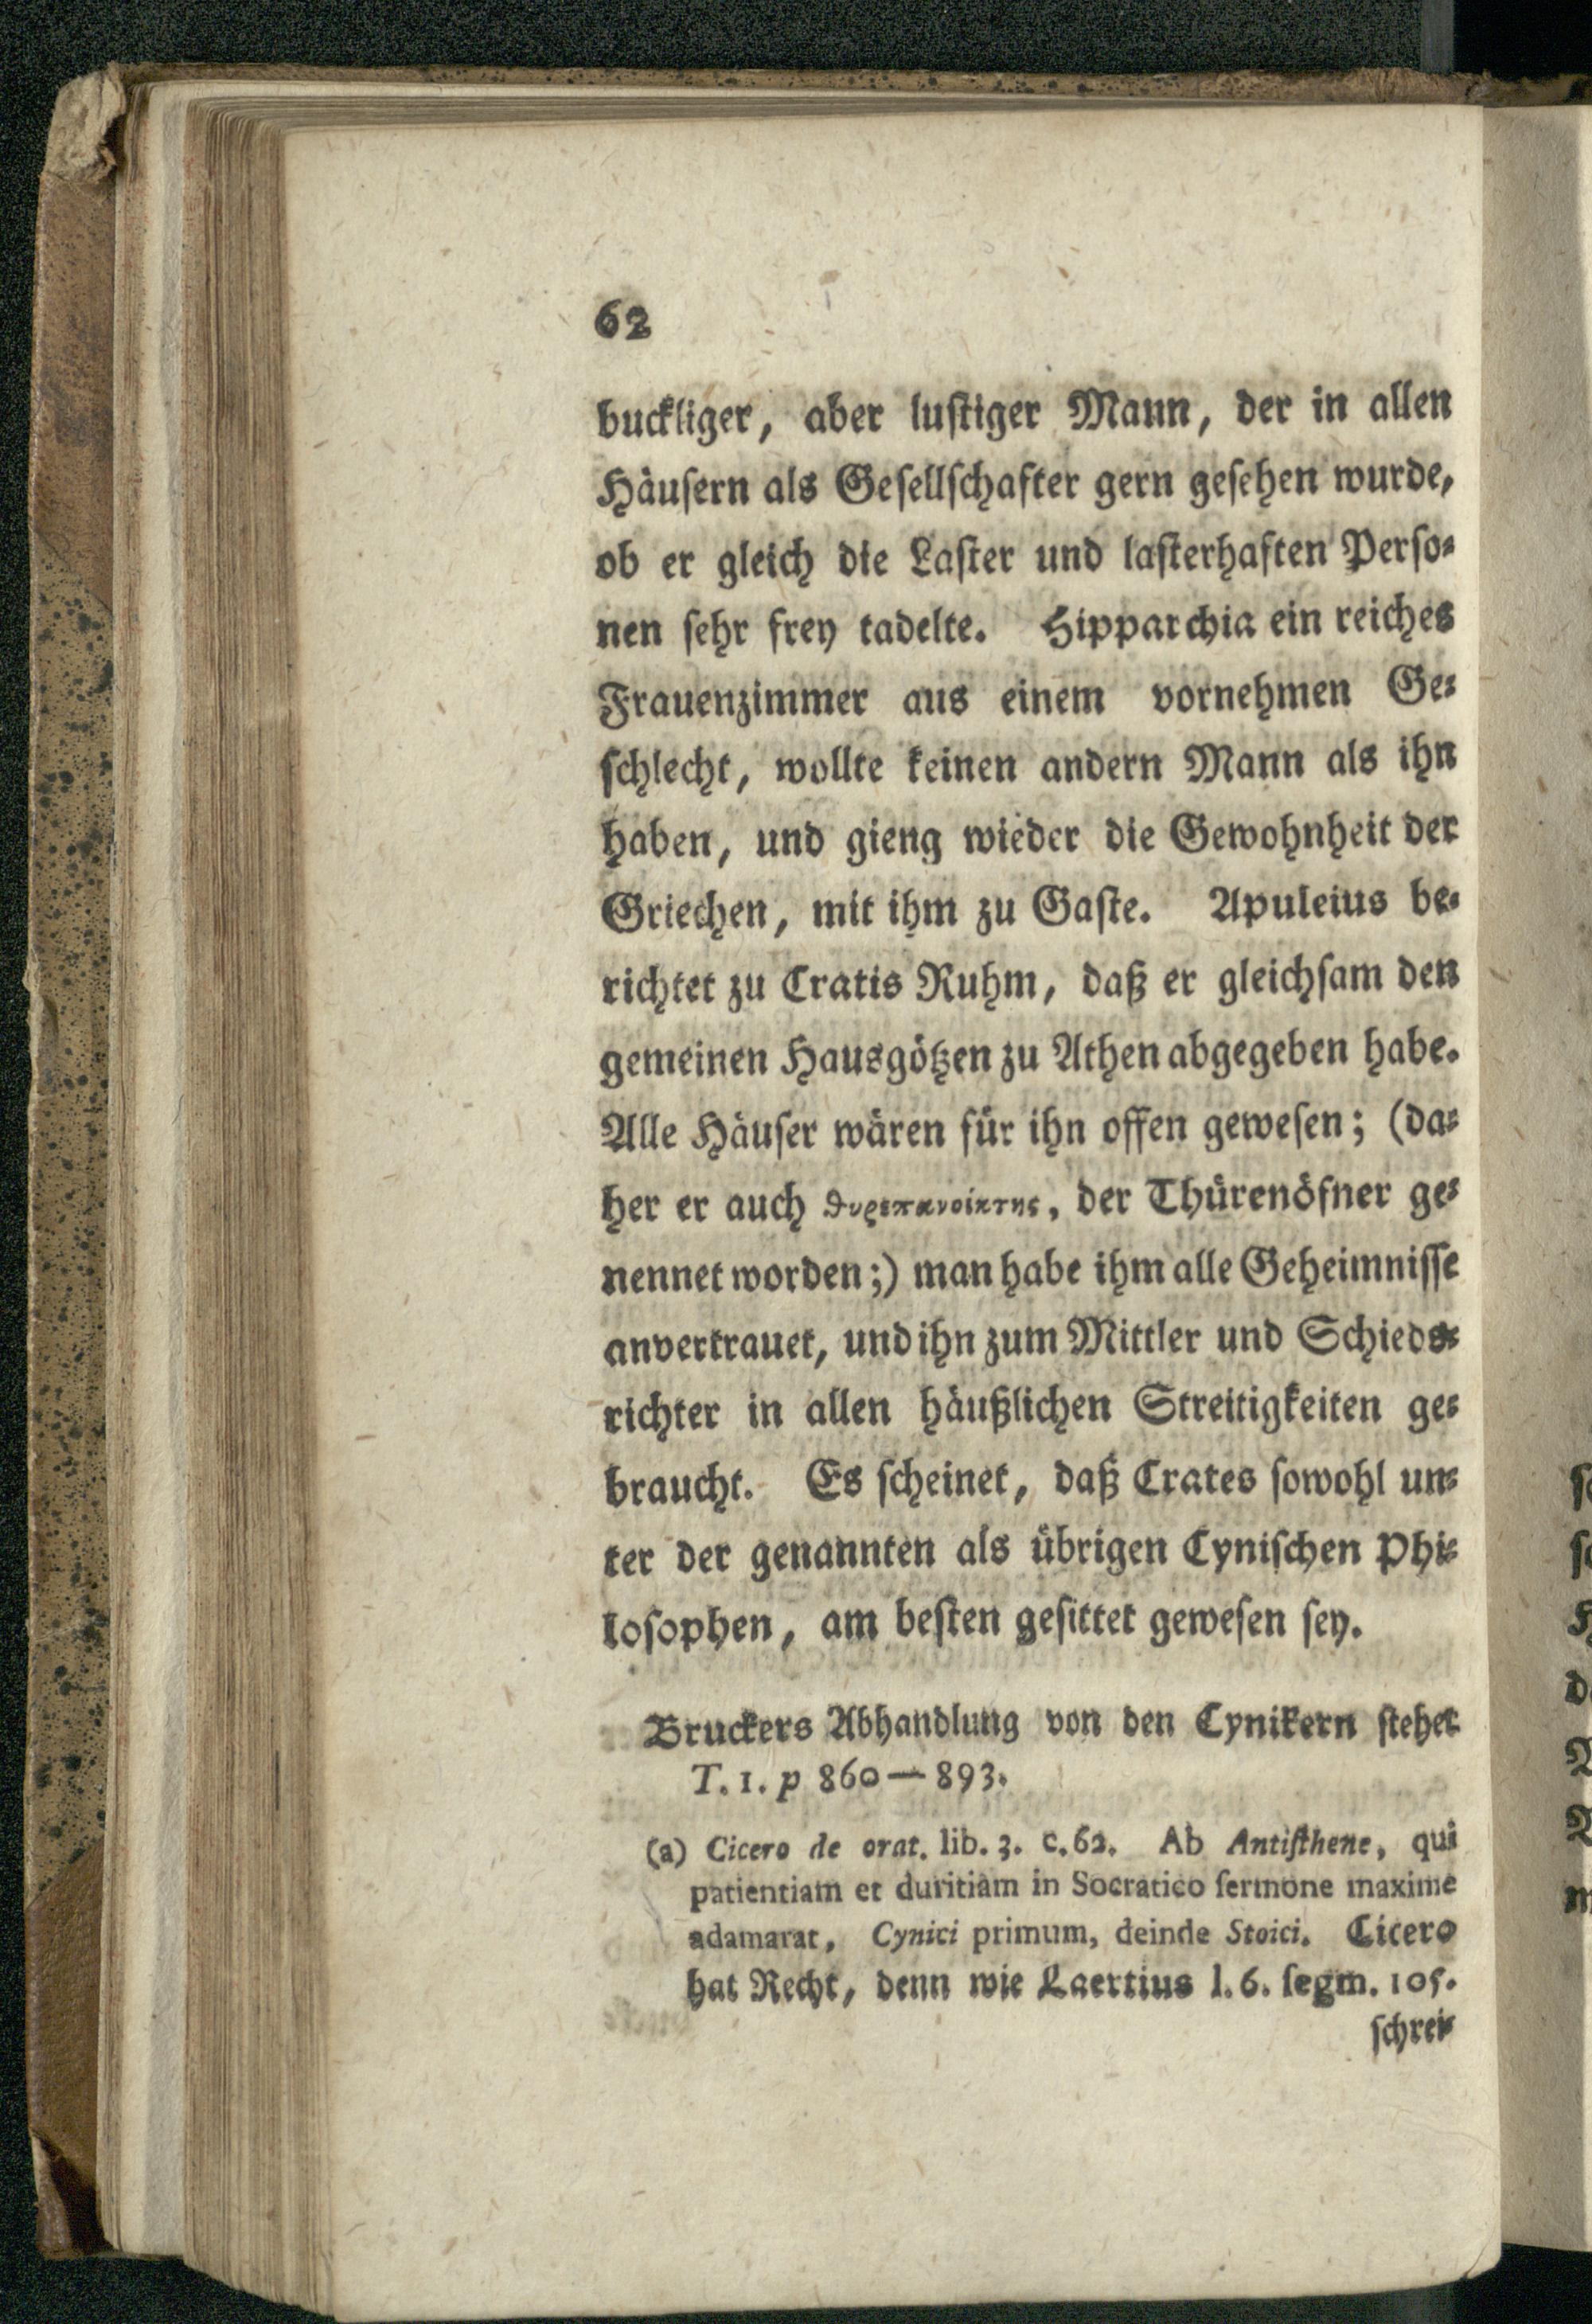 62
buckliger, aber luſtiger Mann, der in allen
Häuſern als Geſellſchafter gern geſehen wurde,
ob er gleich die Laſter und laſterhaften Perſo⸗
nen ſehr frey tadelte. Hipparchia ein reiches
Frauenzimmer aus einem vornehmen Ge⸗
ſchlecht, wollte keinen andern Mann als ihn
haben, und gieng wieder die Gewohnheit der
Griechen, mit ihm zu Gaſte. Apuleius be⸗
richtet zu Cratis Ruhm, daß er gleichſam den
gemeinen Hausgötzen zu Athen abgegeben habe.
Alle Häuſer wären für ihn offen geweſen; (da⸗
her er auch ϑυρεπανοίκτης, der Thürenöfner ge⸗
nennet worden;) man habe ihm alle Geheimniſſe
anvertrauet, und ihn zum Mittler und Schieds⸗
richter in allen häußlichen Streitigkeiten ge⸗
braucht. Es ſcheinet, daß Crates ſowohl un⸗
ter der genannten als übrigen Cyniſchen Phi⸗
loſophen, am beſten geſittet geweſen ſey.
Bruckers Abhandlung von den Cynikern ſtehet
T. 1. p 860—893.
(a) Cicero de orat. lib. 3. c. 62. Ab Antiſthene, qui
patientiam et duritiam in Socratico ſermone maxime
adamarat, Cynici primum, deinde Stoici. Cicero
hat Recht, denn wie Laertius l. 6. ſegm. 105.
ſchrei⸗